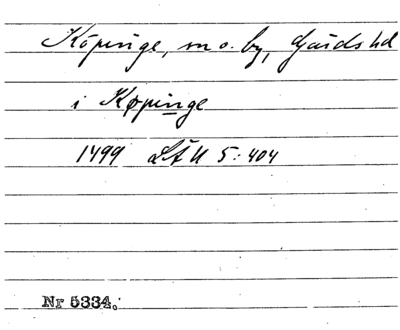 Köpinge, sn o. by, Gärds hd
i Køpinge
1499 LÄU 5:404
Nr 5334.